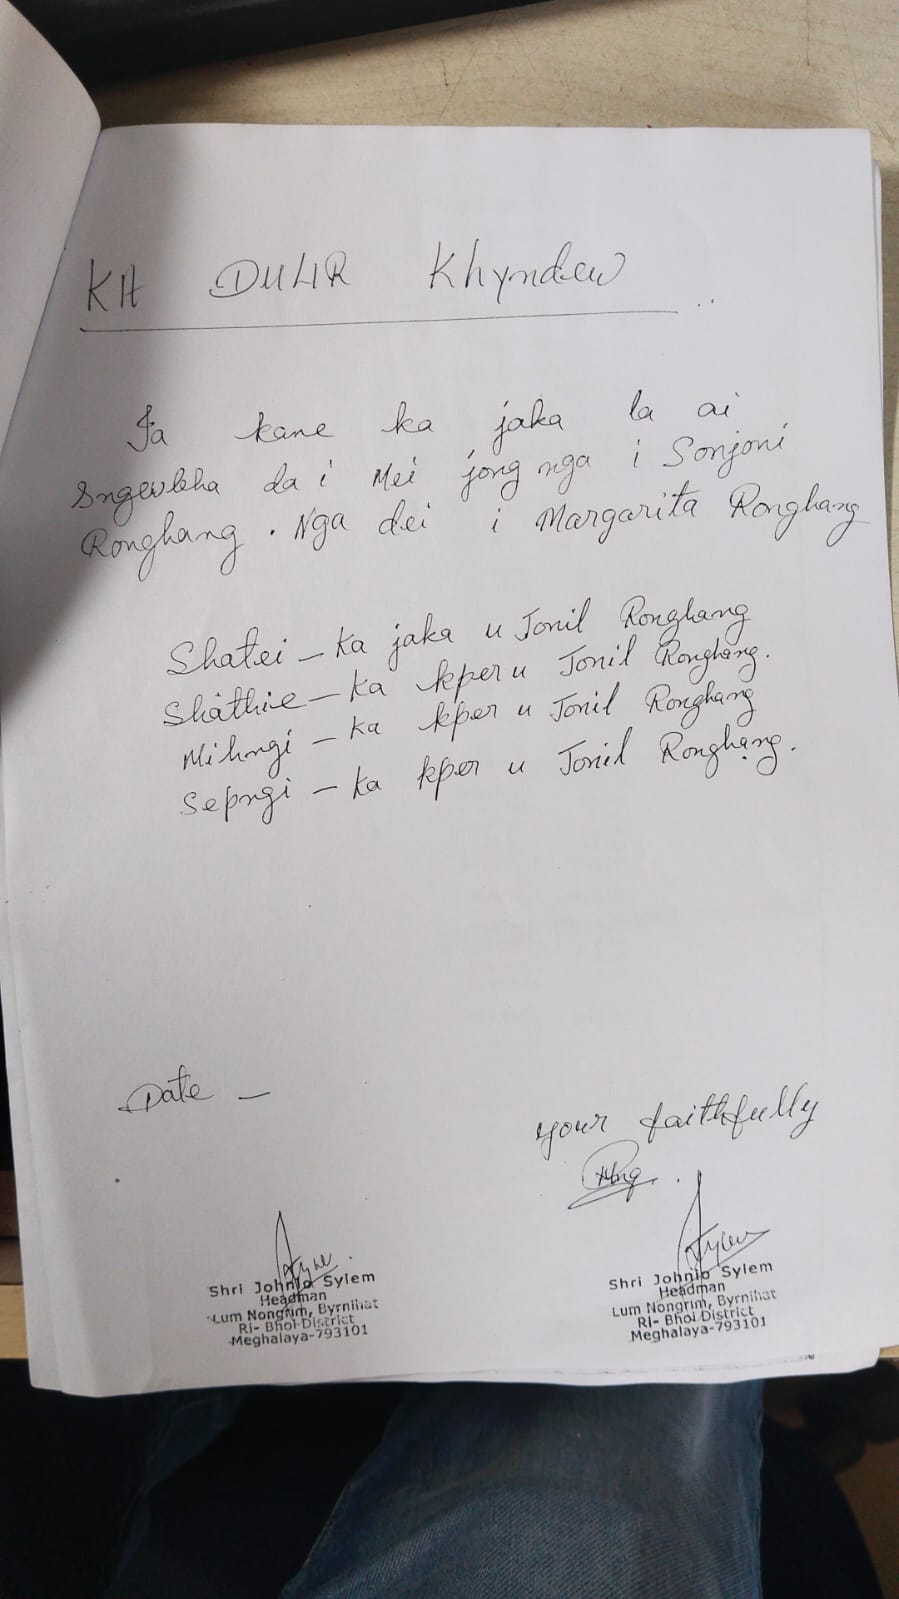 KA DULIR Khyndew
Ia kane ka jaka la ai
Sngewbha da i Mei jong nga i Sonjoni
Ronghang. Nga dei i Margarita Ronghang
Shatei – Ka jaka u Jonil Ronghang
Shathie – Ka kper u Jonil Ronghang.
Mihngi – Ka kper u Jonil Ronghang
Sepngi – Ka kper u Jonil Ronghang.
Date –
your faithfully
Shri Johnip Sylem
Headman
Lum Nongrim, Byrnihat
Ri- Bhoi District
Meghalaya-793101
Shri Johnip Sylem
Headman
Lum Nongrim, Byrnihat
Ri- Bhoi District
Meghalaya-793101